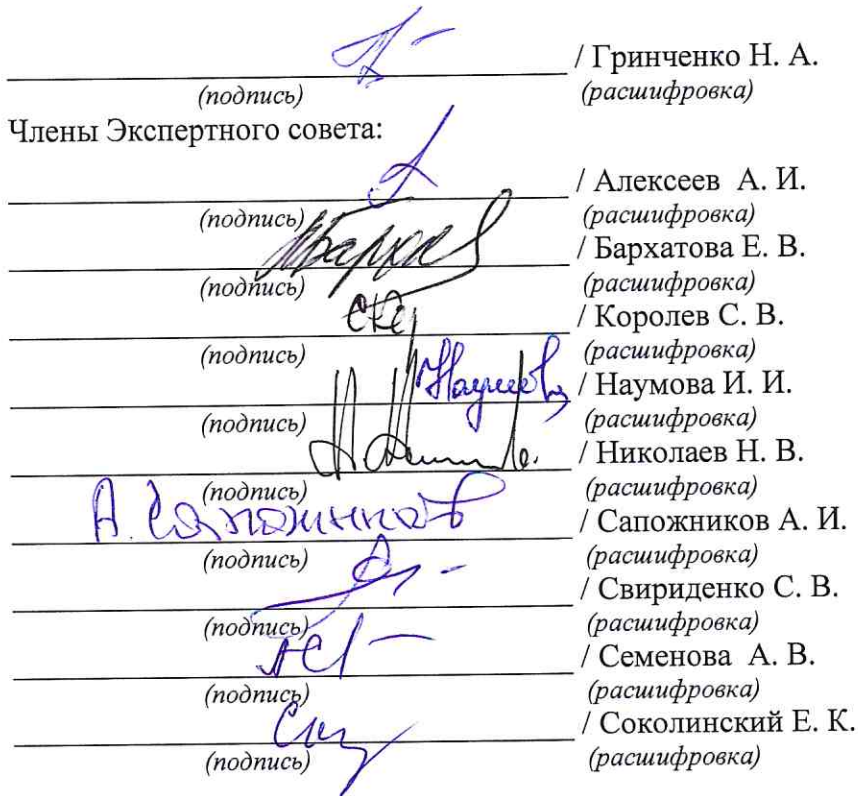 / Гринченко Н. А.
(подпись) (расшифровка)
Члены Экспертного совета:
/ Алексеев А. И.
(подпись) (расшифровка)
/ Бархатова Е. В.
(подпись) (расшифровка)
/ Королев С. В.
(подпись) (расшифровка)
Наумова / Наумова И. И.
(подпись) (расшифровка)
/ Николаев Н. В.
(подпись) (расшифровка)
А. Сапожников / Сапожников А. И.
(подпись) (расшифровка)
/ Свириденко С. В.
(подпись) (расшифровка)
/ Семенова А. В.
(подпись) (расшифровка)
/ Соколинский Е. К.
(подпись) (расшифровка)